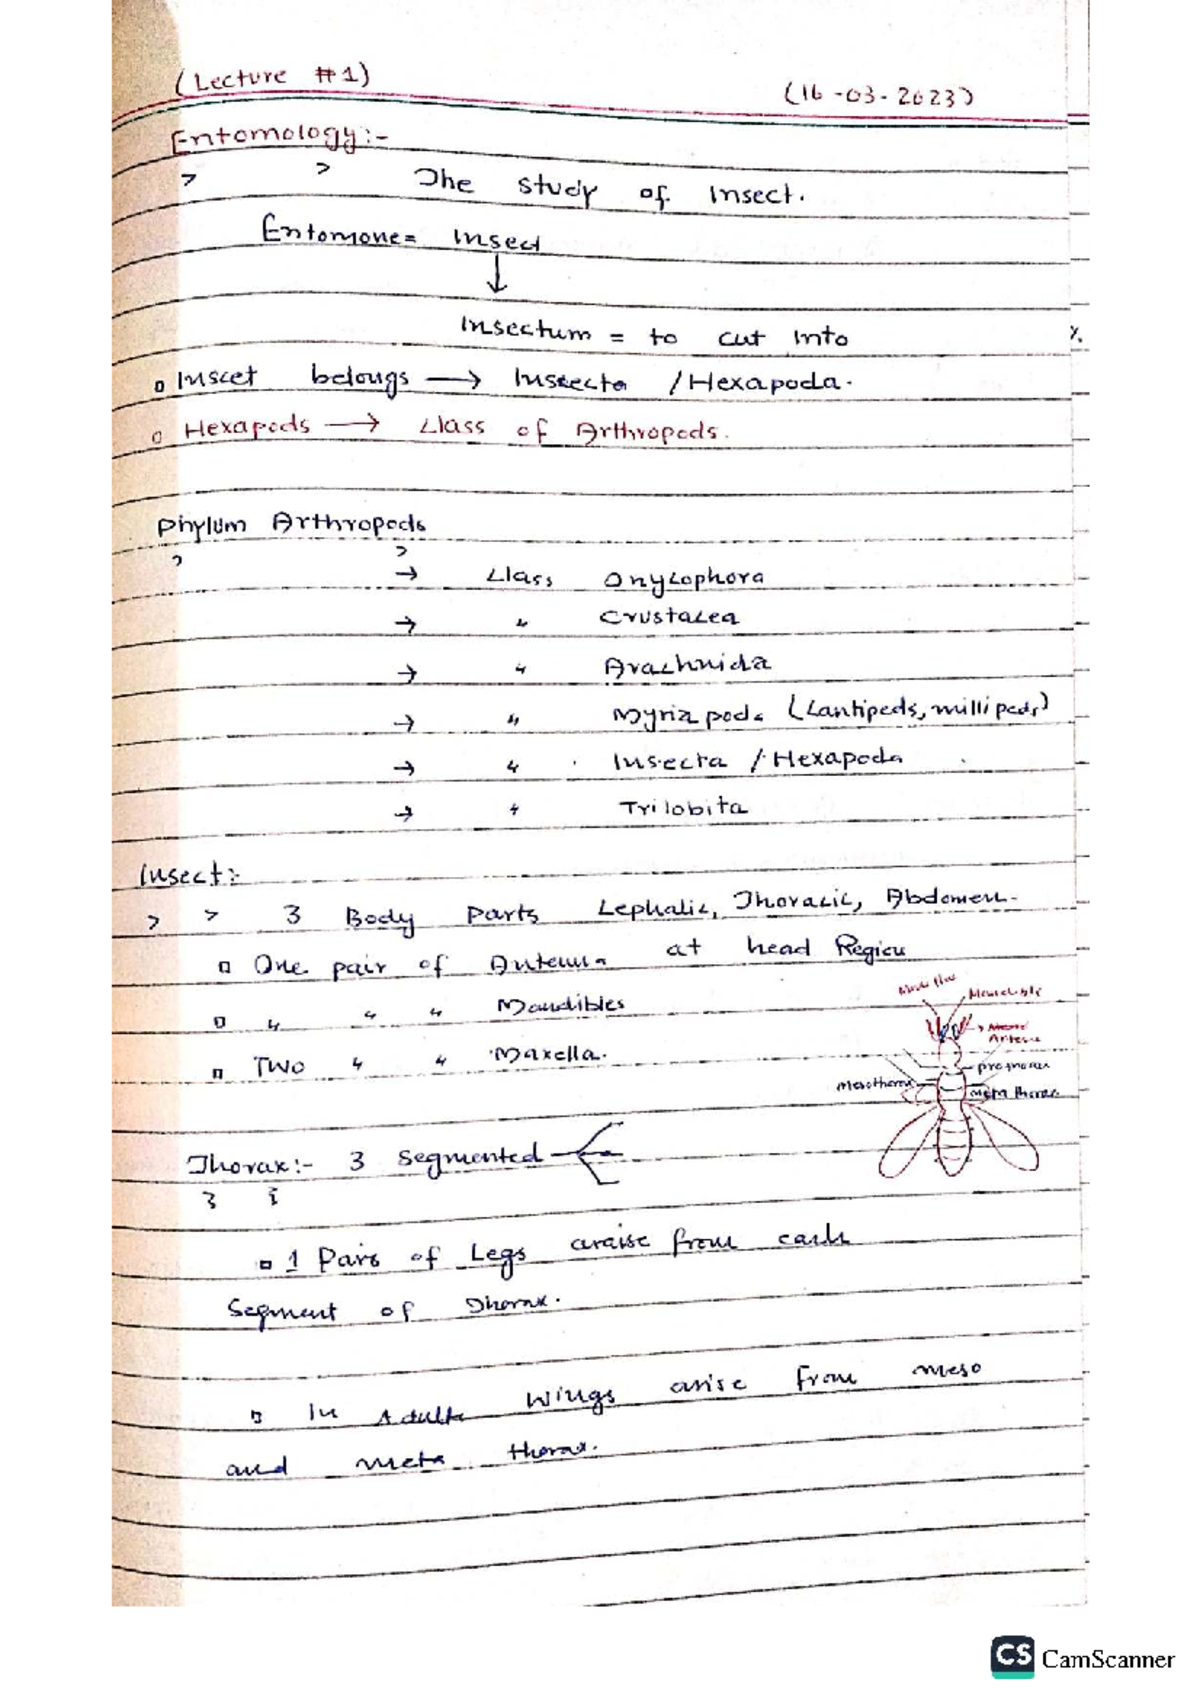 (Lecture #1)
(16-03-2023)
Entomology:-
The study of Insect.
Entomone= Insect
↓
Insectum = to cut into
Inscet belongs → Insecta /Hexapoda.
Hexapods → Class of Arthropods.
Phylum Arthropods
→ Class Onycophora
→ " Crustacea
→ " Arachnida
→ " Myriapoda (Cantipeds, millipeds)
→ " Insecta / Hexapoda
→ " Trilobita
Insect:-
3 Body Parts Cephalic, Thoracic, Abdomen.
One pair of Antenna at head Region
" " " Mandibles
Two " " Maxella.
Mandible
Antenna
prothorax
Mesothorax
meta thorax
Thorax:- 3 segmented
1 Pairs of Legs araise from each
Segment of Thorax.
In Adults wings arise from meso
and meta thorax.
CS CamScanner